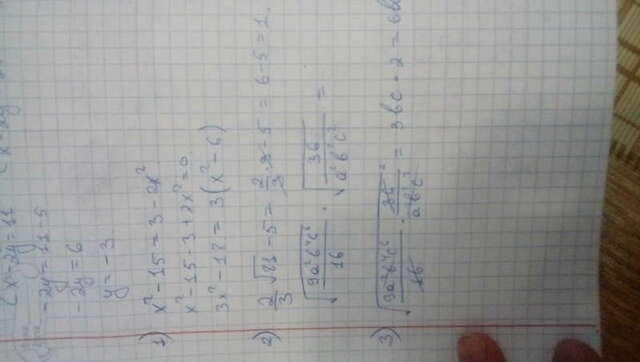 x - 2y = 11
-2y = 11 - 5
-2y = 6
y = -3
1) x² - 15 = 3 - 2x²
x² - 15 - 3 + 2x² = 0
3x² - 18 = 3(x² - 6)
2) 2/3 √81 - 5 = 2/3 · 9 - 5 = 6 - 5 = 1
√(9a²b⁴c⁶/16) · √(36/a²b²c²) =
3) √(9a²b⁴c⁶/16 · 36/a²b²c²) = 3bc · 2 =